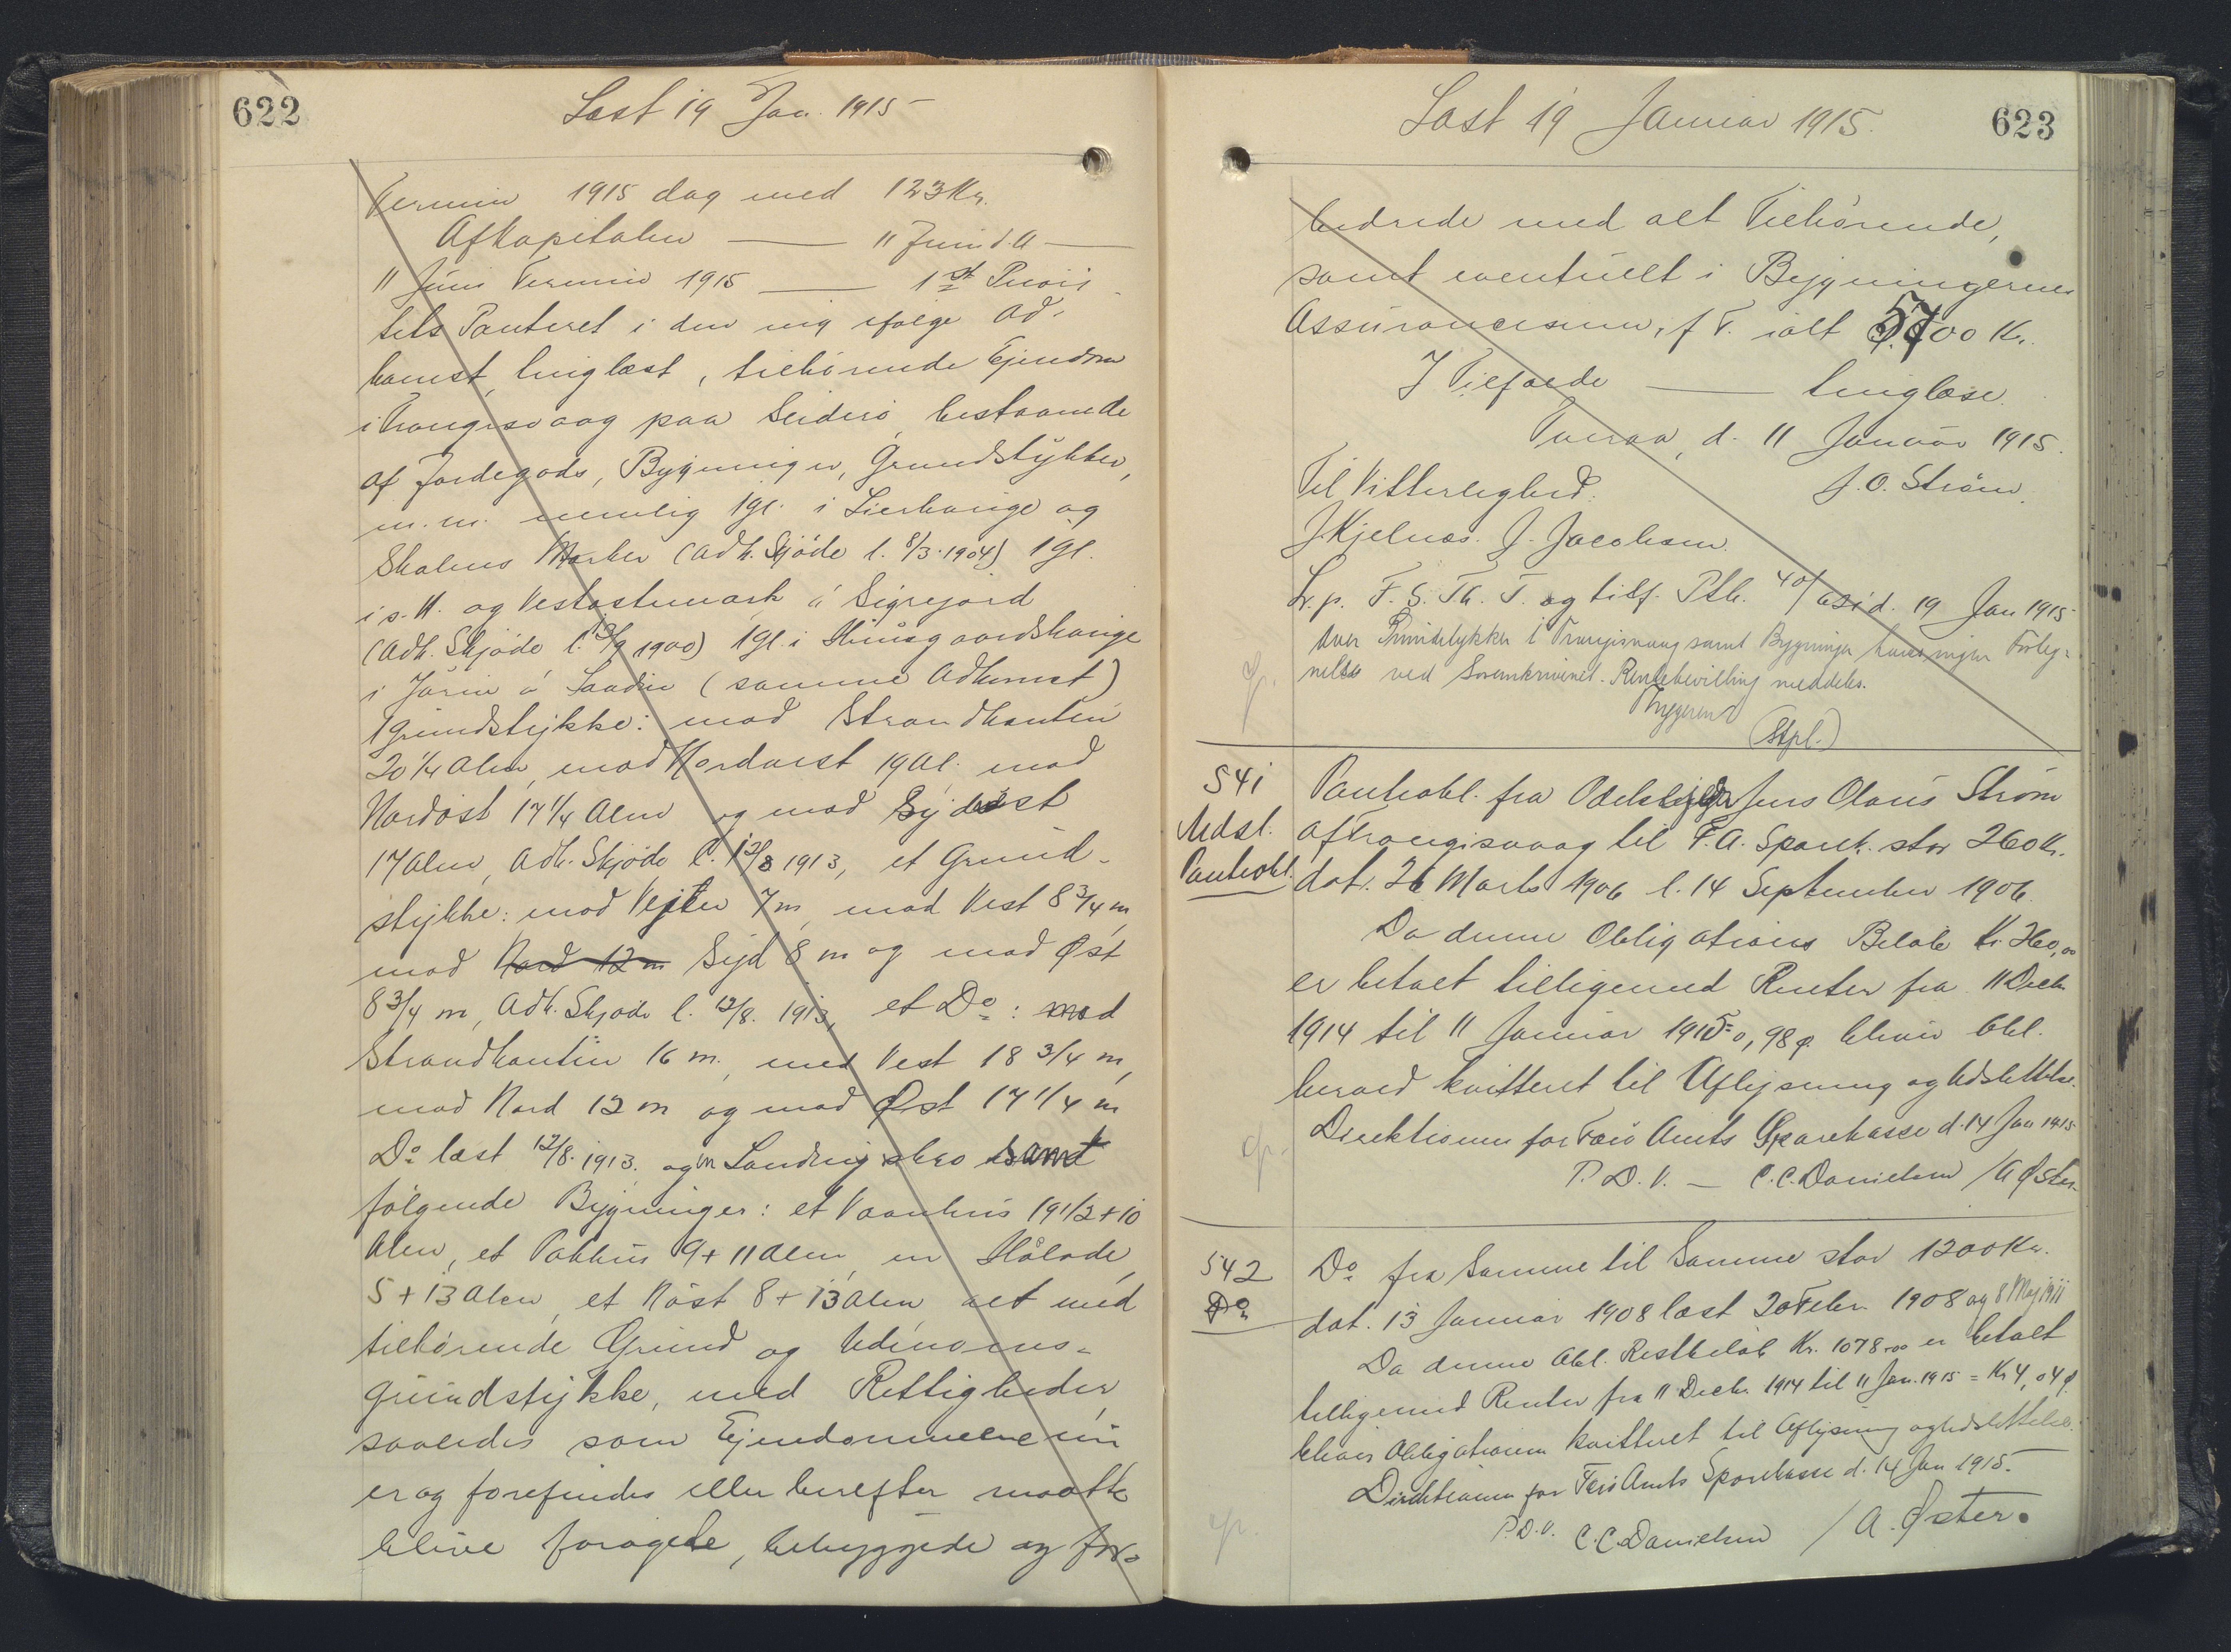 622
Læst 19 Jan. 1915
Termin 1915 dag med 123 Kr.
Af Kapitalen — 11 Juni d. A —
11 Juni Termin 1915 — 1st Priori-
tets Panteret i den mig ifølge Ad-
komst, tinglæst, tilhørende Ejendom
i Trangisvaag paa Suderø, bestaaende
af Jordegods, Bygninger, Grundstykker,
m.m. nemlig 1 gl. i Lierhauge og
Skalens Marker (Adk. Skjøde l. 8/3. 1904) 1 gl.
i s. M. og Vestastumark á Sigrejord
(Adk. Skjøde l. 1900) 1 gl. i Húusgaardshauge
i Jørin á Sandin (samme Adkomst)
1 Grundstykke: mod Strandkanten
20 1/4 Alen, mod Nordvest 19 Al. mod
Nordøst 17 1/4 Alen og mod Sydvest
17 Alen, Adk. Skjøde l. 12/8 1913, et Grund-
stykke: mod Vejen 7 m, mod Vest 8 3/4 m,
mod Nord 12 m Syd 8 m og mod Øst
8 3/4 m, Adk. Skjøde l. 12/8. 1913, et Do: mod
Strandkanten 16 m., mod Vest 18 3/4 m,
mod Nord 12 m og mod Øst 17 1/4 m
Do læst 12/8. 1913. og en Landingsbro samt
følgende Bygninger: et Vaanhus 19 1/2 + 10
Alen, et Pakhus 9 + 11 Alen, en Hølade,
5 + 13 Alen, et Nøst 8 + 13 Alen alt med
tilhørende Grund og Udenoms-
grundstykke, med Rettigheder
saaledes som Ejendommene nu
er og forefindes eller herefter maatte
blive forøgede, bebyggede og for-
Læst 19 Januar 1915.
623
bedrede med alt Tilhørende,
samt eventuelt i Bygningernes
Assurancesum, f. T. ialt 5700 Kr.
I Tilfælde — tinglæse.
Tveraa, d. 11 Januar 1915.
Til Vitterlighed: J. O. Strøm.
J. Kjelnæs. J. Jacobsen.
Lr. p. F. S. Th. T. og tilf. Ptb. 40/ d. 19 Jan 1915
Over Grundstykker i Trangisvaag samt Bygninger haves ingen Forteg-
nelse ved Sorenskriveriet. Rentebevilling meddeles.
Thygesen
(Stpl.)
541
Udsl.
Panteobl.
Panteobl. fra Odelsbonde Jens Olaus Strøm
af Trangisvaag til F. A. Spark. stor 260 Kr.
dat. 26 Marts 1906 l. 14 September 1906.
Da denne Obligations Beløb Kr. 260,00
er betalt tilligemed Renter fra 11 Decbr.
1914 til 11 Januar 1915 = 0,98 ø. bliver Obl.
herved kvitteret til Aflysning og Udslettelse.
Direktionen for Færø Amts Sparekasse d. 14 Jan 1915
P. D. V. — C. C. Danielsen / A. Øster
542
Do
Do fra Samme til Samme stor 1200 Kr.
dat. 13 Januar 1908 læst 20 Febr. 1908 og 8 Maj 1911
Da denne Obl. Restbeløb Kr. 1078,00 er betalt
tilligemed Renter fra 11 Decbr. 1914 til 11 Jan. 1915 = Kr 4,04 ø.
bliver Obligationen kvitteret til Aflysning og Udslettelse.
Direktionen for Færø Amts Sparekasse d. 14 Jan 1915.
P. D. V. C. C. Danielsen / A. Øster.